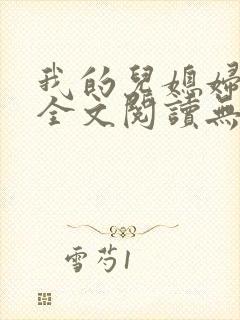 我的兒媳婦
全文閱讀無
雪芍1